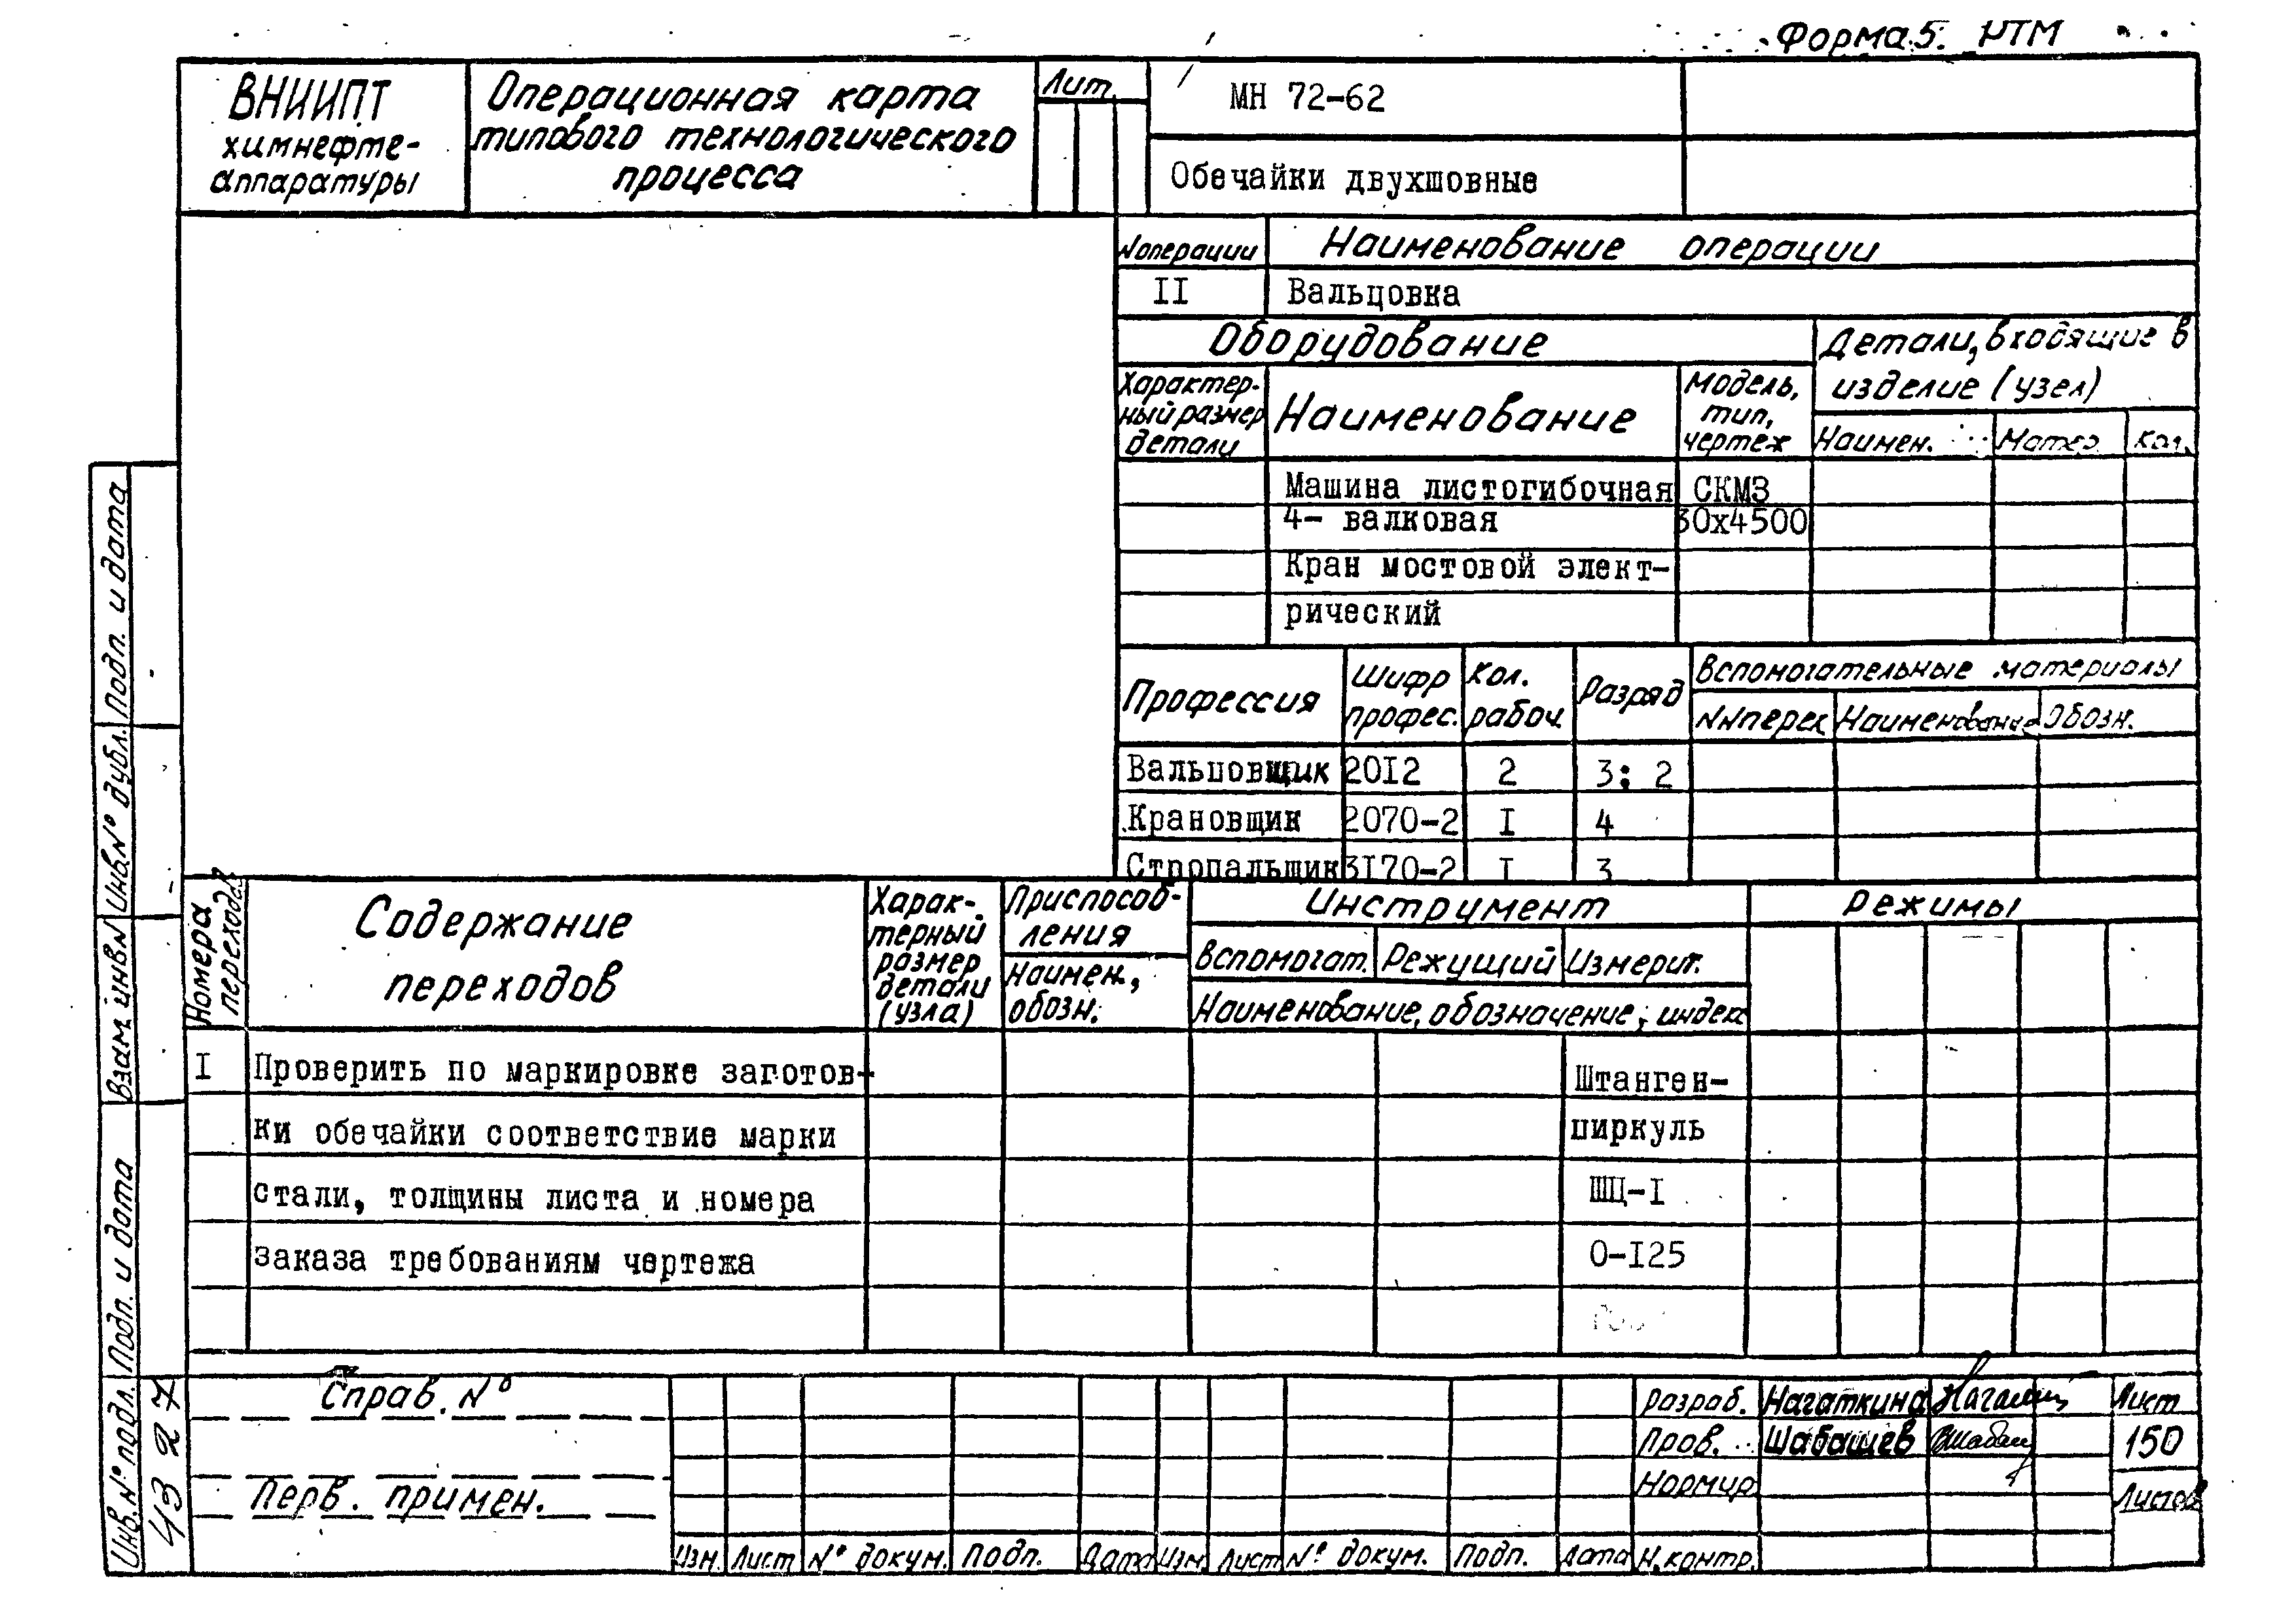 Форма 5. РТМ
ВНИИПТ
химнефте-
аппаратуры
Операционная карта
типового технологического
процесса
Лит.
МН 72-62
Обечайки двухшовные
№операции
Наименование операции
II
Вальцовка
Оборудование
Детали, входящие в
изделие (узел)
Характер-
ный размер
детали
Наименование
Модель,
тип,
чертеж
Наимен.
Матер.
Кол.
Машина листогибочная СКМЗ
4- валковая 30х4500
Кран мостовой элект-
рический
Профессия
Шифр
профес.
Кол.
рабоч.
Разряд
Вспомогательные материалы
№№перех
Наименование
Обозн.
Вальцовщик 20I2 2 3: 2
Крановщик 2070-2 I 4
Стропальщик 3I70-2 I 3
Номера
переходов
Содержание
переходов
Харак-
терный
размер
детали
(узла)
Приспособ-
ления
Наимен.,
обозн.
Инструмент
Вспомогат. Режущий Измерит.
Наименование, обозначение, индекс
Режимы
I Проверить по маркировке заготов-
ки обечайки соответствие марки
стали, толщины листа и номера
заказа требованиям чертежа
Штанген-
циркуль
ШЦ-I
0-I25
Справ. №
Перв. примен.
Изм. Лист № докум. Подп. Дата Изм. Лист № докум. Подп. Дата
Разраб. Нагаткина
Пров. Шабашев
Нормир.
Н.контр.
Лист
150
Листов
Подп. и дата
Инв.№ дубл.
Взам. инв.№
Подп. и дата
Инв.№ подл.
4327